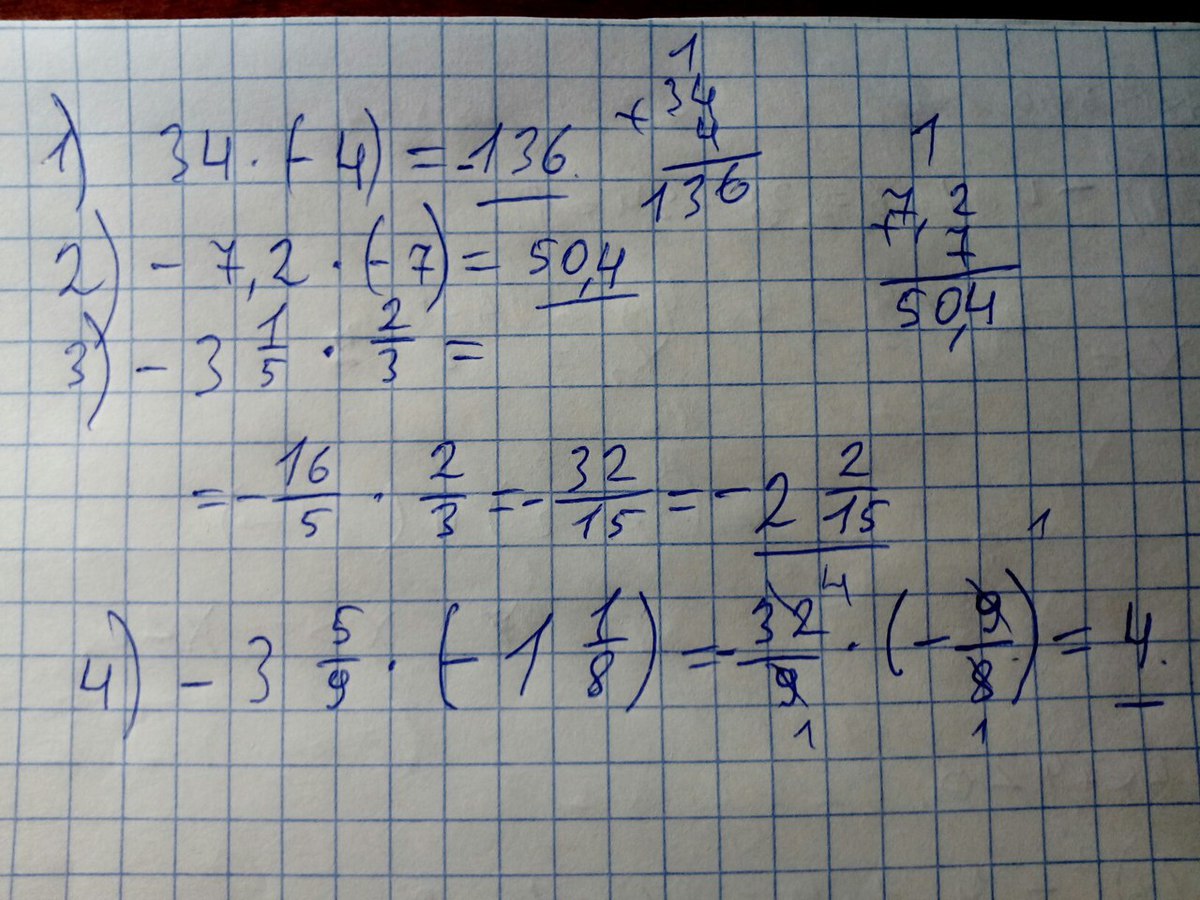 1) 34 · (- 4) = -136.
1
× 34
4
136
2) - 7,2 · (- 7) = 50,4
1
× 7,2
7
50,4
3) - 3 1/5 · 2/3 =
= - 16/5 · 2/3 = - 32/15 = - 2 2/15
4 1
4) - 3 5/9 · (- 1 1/8) = - 32/9 · (- 9/8) = 4.
1 1